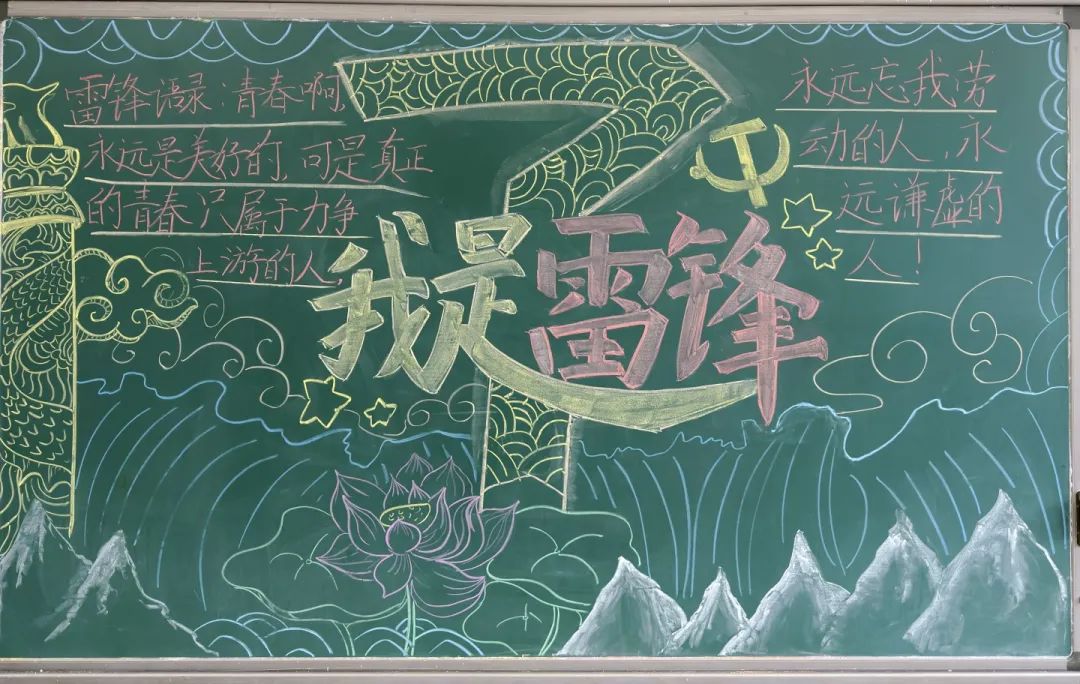 雷锋语录:青春啊,
永远是美好的,可是真正
的青春只属于力争
上游的人,
永远忘我劳
动的人,永
远谦虚的
人!
我是雷锋